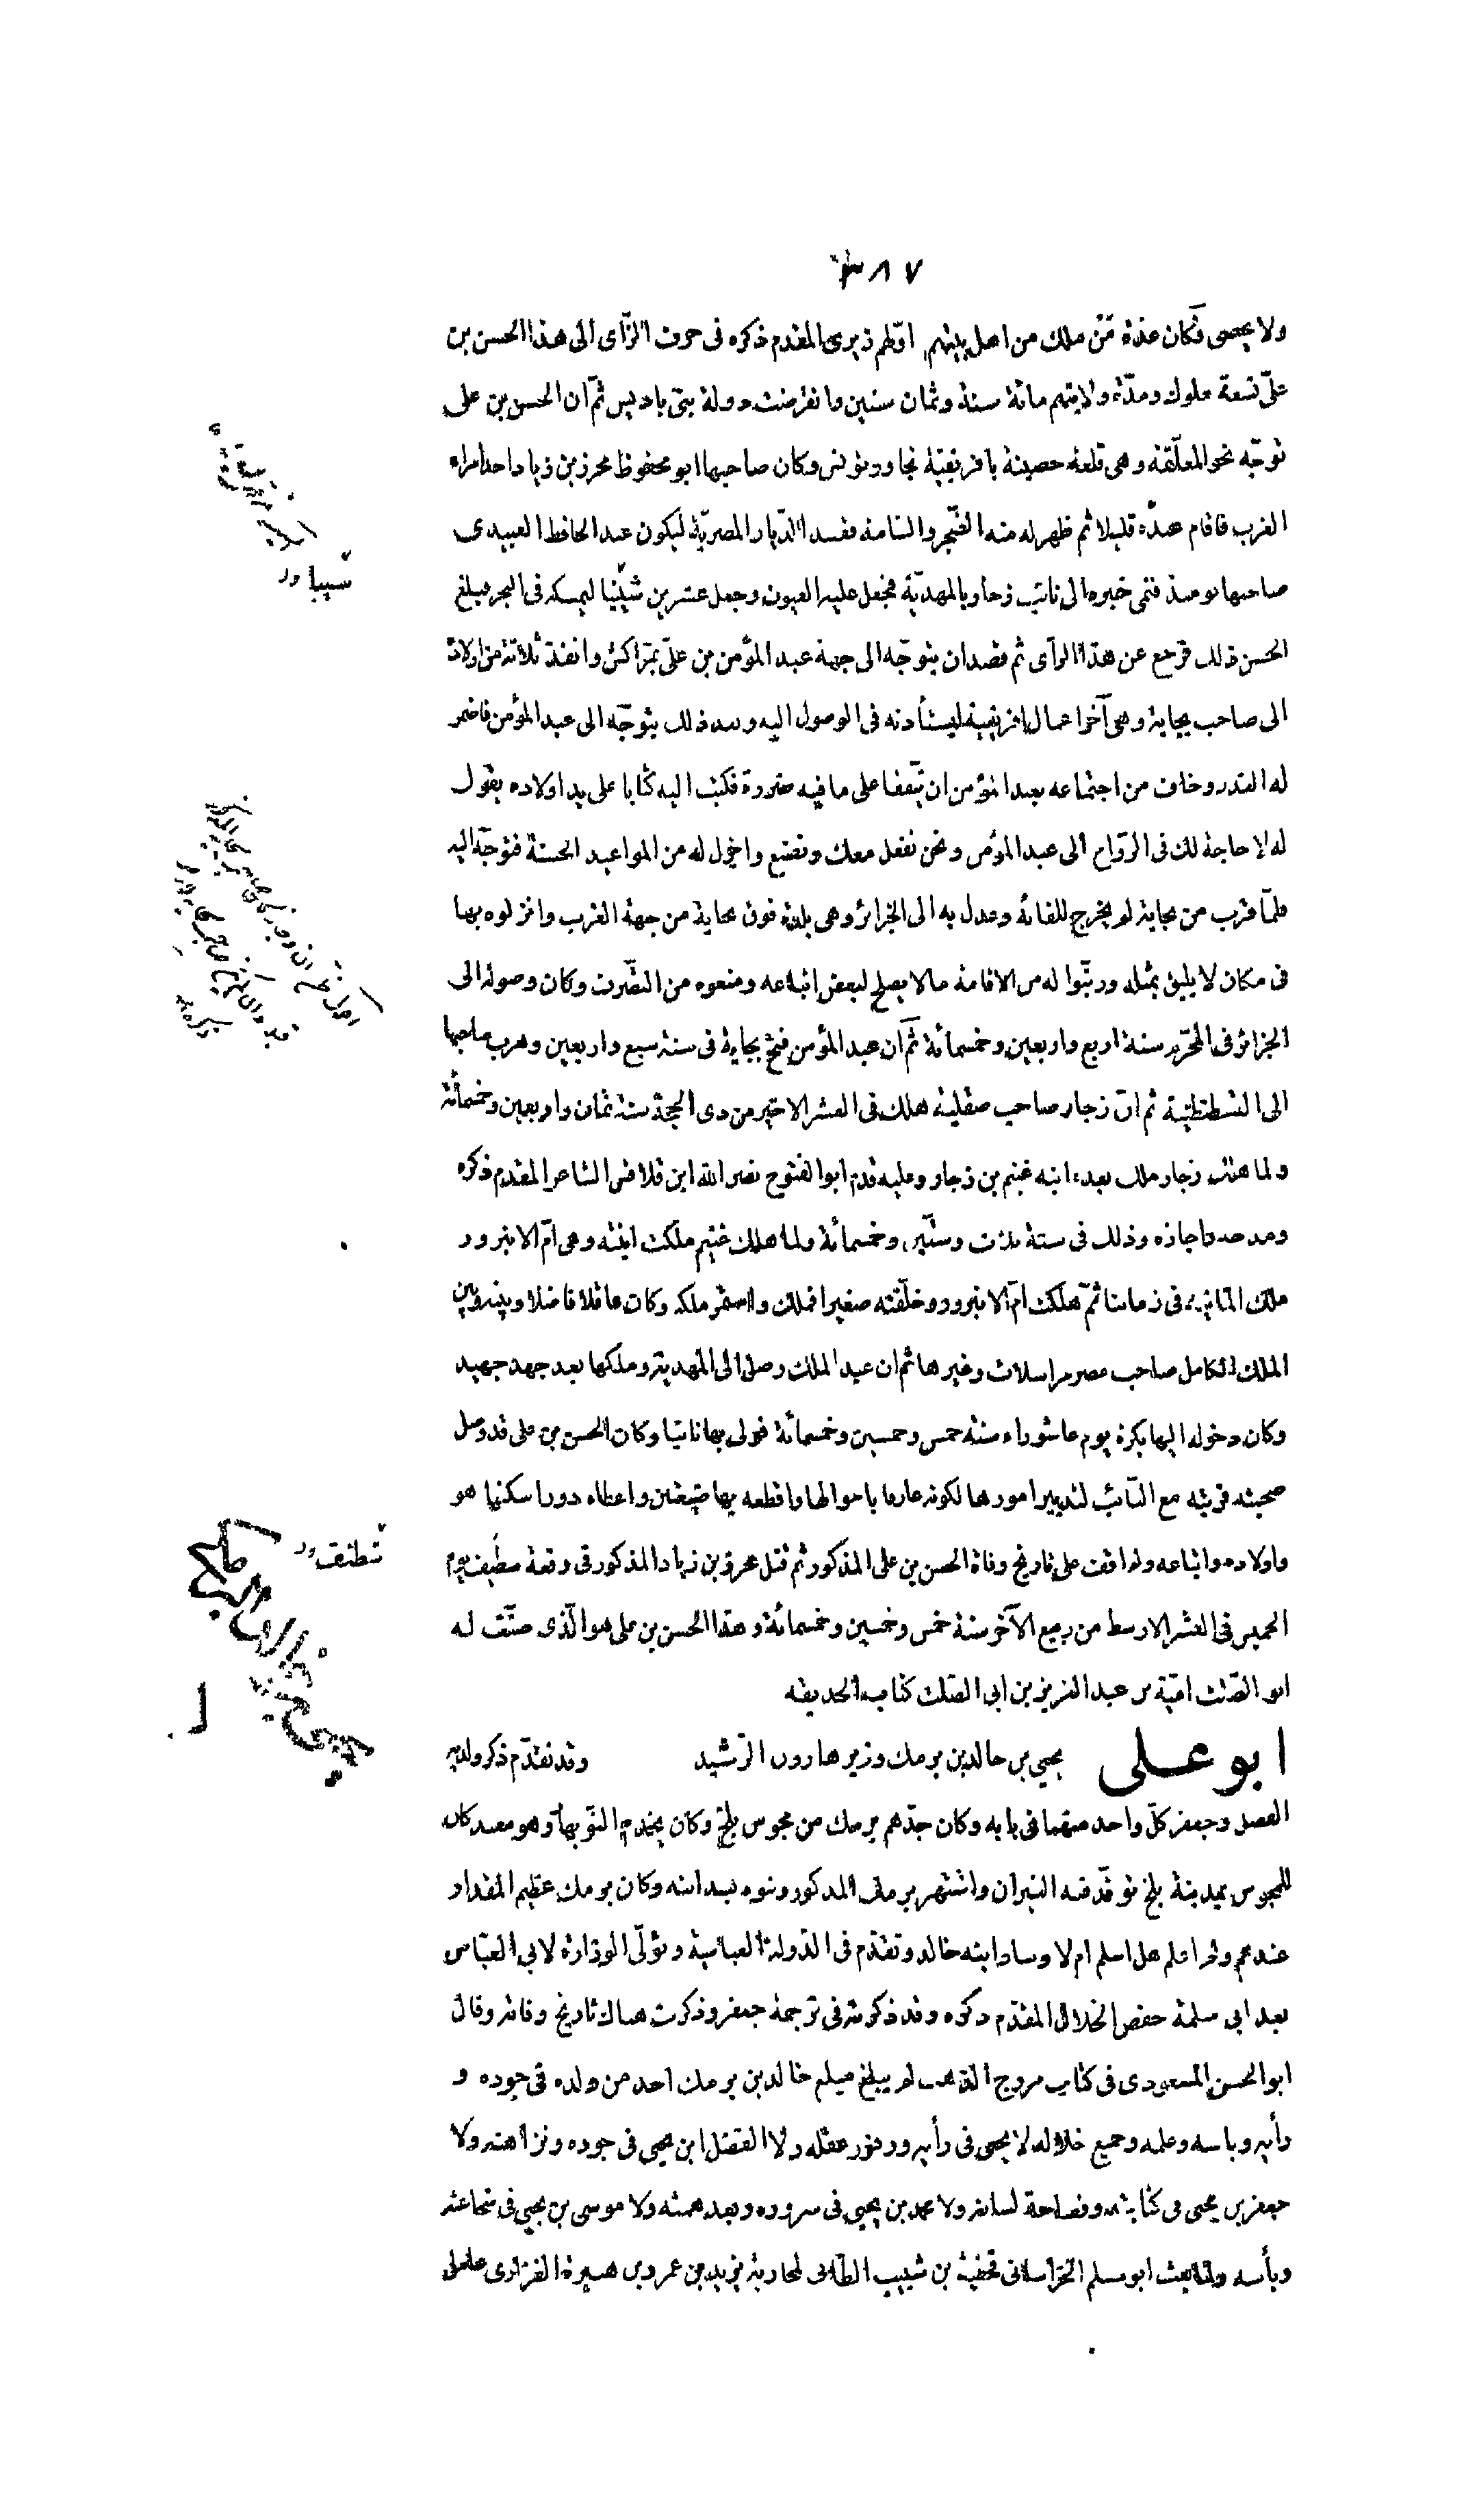 ٣٨٧
ولا يحصى فكان عدة من ملك من اهل بيتهم اولهم زيرى المقدم ذكره فى حرف الزاى الى هذا الحسن بن
علىّ تسعة ملوك ومدّة ولايتهم مائة سنة وثمان سنين وانقرضت دولة بنى باديس ثمّ ان الحسن بن على
توجّه نحو المعلّقة وهى قلعة حصينة بافريقيّة تجاور تونس وكان صاحبها ابو محفوظ محرز بن زياد احد امراء
الغرب فاقام عنده قليلا ثم ظهر له منه الضّجر والسّامة فقصد الدّيار المصريّة ليكون عند الحافظ العبيدى
صاحبها يومئذ فنمى خبره الى نائب زجار بالمهديّة فجعل عليه العيون وجعل عشرين شينيا ليمسكه فى البحر فبلغ
الحسن ذلك فرجع عن هذا الرأى ثم قصد ان يتوجّه الى جهة عبد المؤمن بن علىّ بمرّاكش وانفذ ثلاثة من اولاده
الى صاحب بجاية وهى آخر اعمال افريقية ليستأذنه فى الوصول اليه وبعد ذلك يتوجّه الى عبد المؤمن فاضمر
له الغدر وخاف من اجتماعه بعبد المؤمن ان يتّفقا على ما فيه ضرره فكتب اليه كتابا على يد اولاده يقول
له لا حاجة لك فى الرّواح الى عبد المؤمن ونحن نفعل معك ونصنع واخول له من المواعيد الحسنة فتوجّه اليه
فلمّا قرب من بجاية لم يخرج للقائه وعدل به الى الجزائر وهى بلدة فوق بجاية من جهة الغرب وانزلوه بها
فى مكان لا يليق بمثله ورتّبوا له من الاقامة ما لا يصلح لبعض اتباعه ومنعوه من التّصرّف وكان وصوله الى
الجزائر فى المحرّم سنة اربع واربعين وخمسمائة ثمّ ان عبد المؤمن فتح بجاية فى سنة سبع واربعين وهرب صاحبها
الى القسطنطينية ثم انّ زجار صاحب صقلية هلك فى العشر الاخير من ذى الحجة سنة ثمان واربعين وخمسمائة
ولما هلك زجار ملك بعده ابنه غنيم بن زجار وعليه قدم ابو الفتوح نصر الله ابن قلاقس الشاعر المقدم ذكره
ومدحه واجازه وذلك فى سنة ثلاث وستّين وخمسمائة ولما هلك غنيم ملكت ابنته وهى امّ الانبرور
ملك المانيه فى زماننا ثمّ هلكت امّ الانبرور وخلّفته صغيرا فملك واستمر ملكه وكان عاقلا فاضلا وبينه وبين
الملك الكامل صاحب مصر مراسلات وغيرها ثم ان عبد الملك وصل الى المهدية وملكها بعد جهد جهيد
وكان دخوله اليها بكرة يوم عاشوراء سنة خمس وخمسين وخمسمائة فولى بها نائبا وكان الحسن بن على قد وصل
صحبته فرتبه مع النّائب لتدبير امورها لكونه عارفا باحوالها واقطعه بها ضيعتين واعطاه دورا سكنها هو
واولاده واتباعه ولم اقف على تاريخ وفاة الحسن بن على المذكور ثم قتل محرز بن زياد المذكور فى وقعة سطيف يوم
الخميس فى العشر الاوسط من ربيع الآخر سنة خمس وخمسين وخمسمائة وهذا الحسن بن على هو الّذى صنّف له
ابو الصّلت اميّة بن عبد العزيز بن ابى الصّلت كتاب الحديقه
ابو على يحيى بن خالد بن برمك وزير هارون الرّشيد وقد تقدّم ذكر ولديه
الفضل وجعفر كلّ واحد منهما فى بابه وكان جدّهم برمك من مجوس بلخ وكان يخدم النّوبهار وهو معبد كان
للمجوس بمدينة بلخ توقّد فيه النيران واشتهر برمك المذكور وبنوه بسدانته وكان برمك عظيم المقدار
عندهم ولم اعلم هل اسلم ام لا وساد ابنه خالد وتقدّم فى الدّولة العباسية وتولّى الوزارة لابى العبّاس
بعد ابى سلمة حفص الخلال المقدّم ذكره وقد ذكرته فى ترجمة جعفر وذكرت هناك تاريخ وفاته وقال
ابو الحسن المسعودى فى كتاب مروج الذهب لم يبلغ مبلغ خالد بن برمك احد من ولده فى جوده و
رأيه وباسه وعلمه وجميع خلاله لا يحيى فى رأيه ووفور عقله ولا الفضل ابن يحيى فى جوده ونزاهته ولا
جعفر بن يحيى فى كتابته وفصاحة لسانه ولا محمد بن يحيى فى سروره وبعد همته ولا موسى بن يحيى فى شجاعته
وبأسه ولما بعث ابو مسلم الخراسانى قحطبة بن شبيب الطائى لمحاربة يزيد بن عمرو بن هبيرة الفزارى عامل